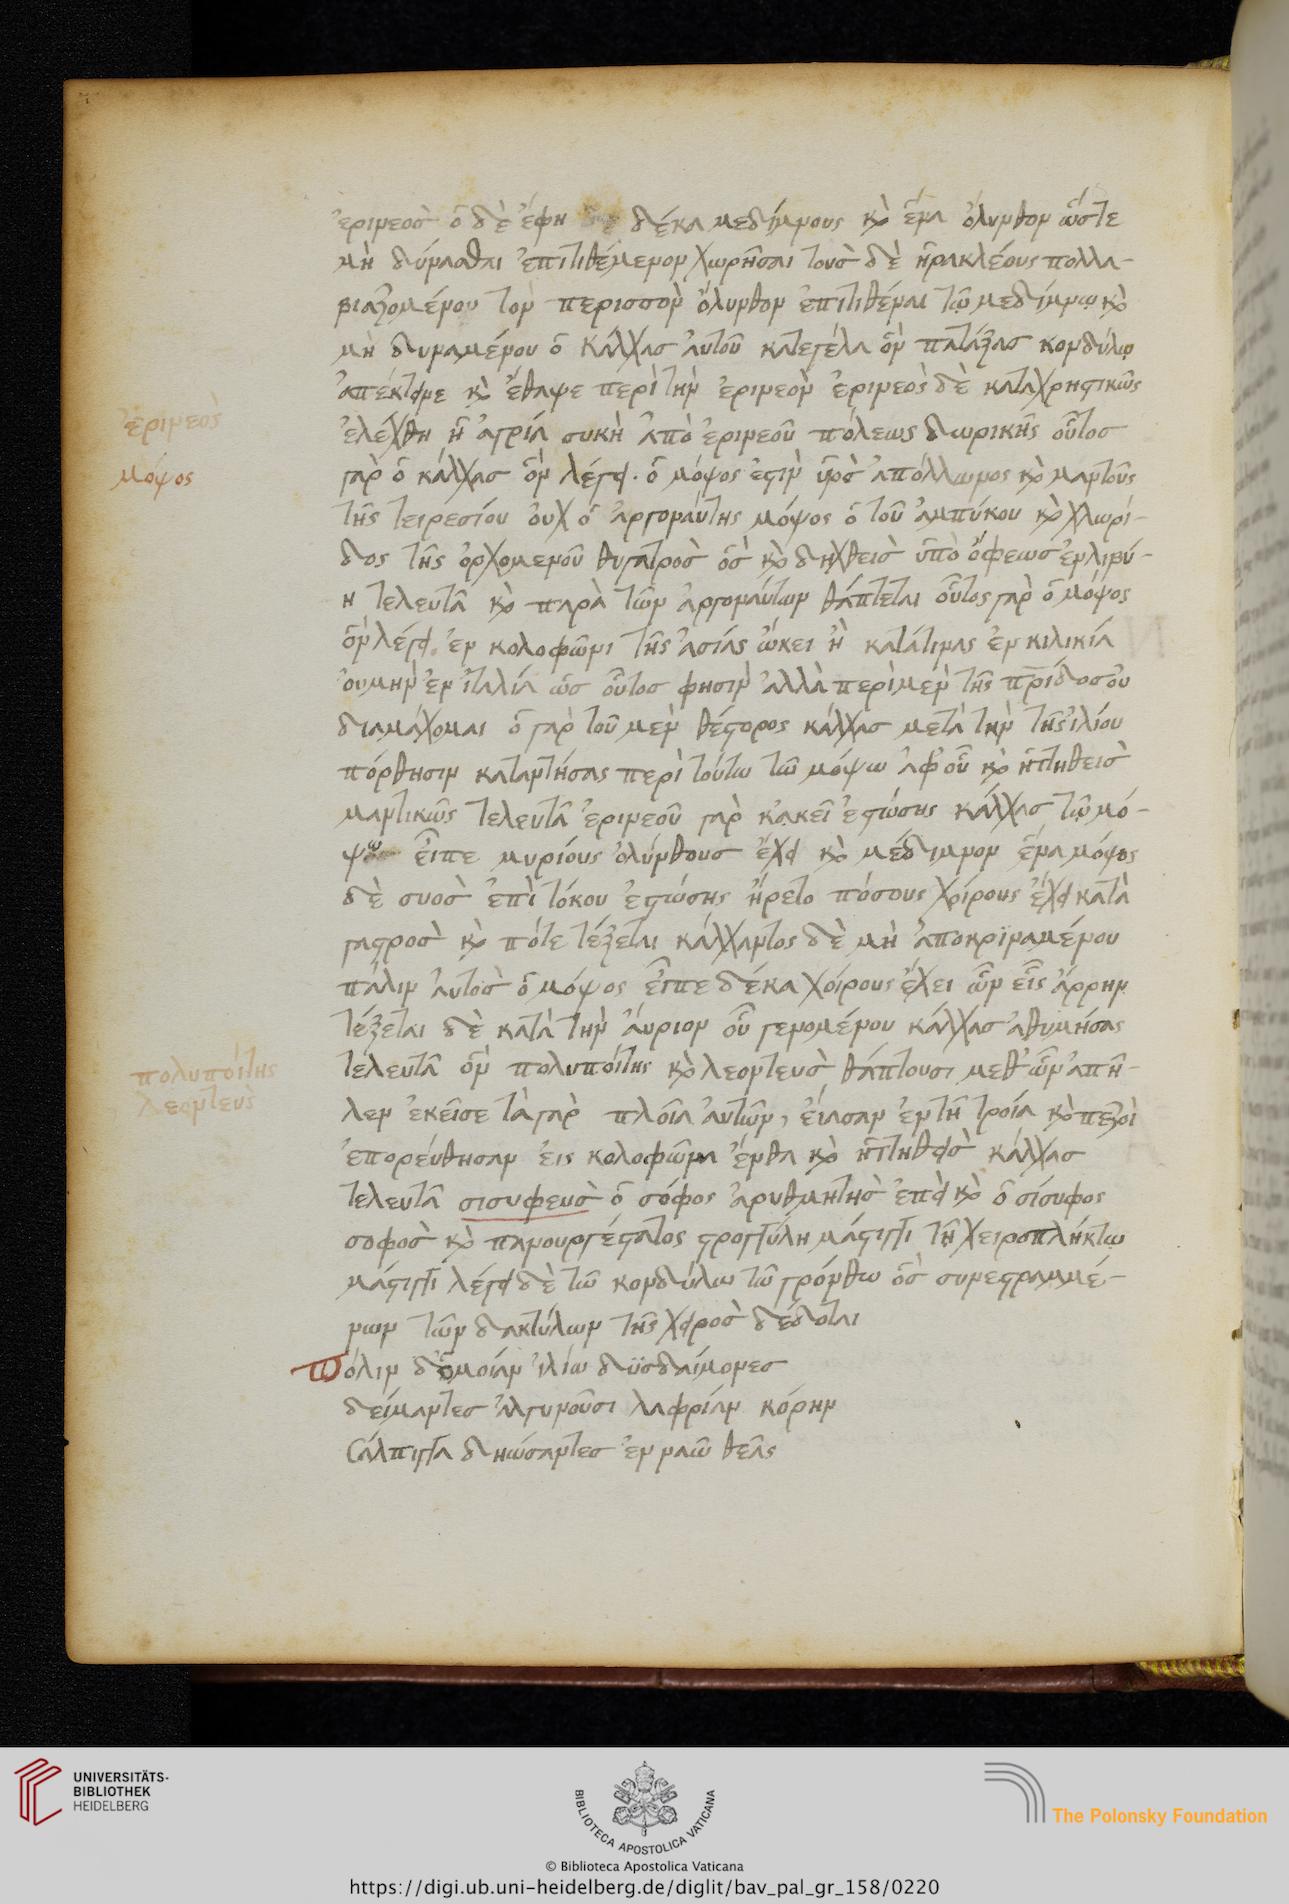 ἐρινεοσ ὁ δὲ ἔφη δέκα μεδίμνους κὸ ἕνα ὄλυνθον ὥστε
μὴ δύνασθαι ἐπιτιθέμενον χωρῆσαι τοῦσ δὲ ἡρακλέους πολλα-
βιαζομένου τὸν περισσὸν ὄλυνθον ἐπιτιθέναι τῷ μεδίμνῳ κὸ
μὴ δυναμένου ὁ κάλχασ ἀυτοῦ κατεγέλα ὃν πατάξασ κονδύλῳ
ἀπέκτεινε κὸ ἔθαψε περὶ τὴν ἐρινεὸν ἐρινεὸσ δὲ καταχρηστικῶς
ἐλέχθη ἡ ἀγρία συκὴ ἀπὸ ἐρινεοῦ πόλεως δωρικῆς οὗτοσ
γὰρ ὁ κάλχασ ὃν λέγει. ὁ μόψος ἐστὶν ὑιὸσ ἀπόλλωνος κὸ μαντοῦς
τῆς τειρεσίου ὀυχ ὁ ἀργοναύτης μόψος ὁ τοῦ ἀμπύκου κὸ χλωρί-
δος τῆς ὀρχομενοῦ θυγατροσ ὃσ κὸ δηχθεισ ὑπὸ ὄφεωσ ἐν λιβύ-
η τελευτᾶ κὸ παρὰ τῶν ἀργοναύτων θάπτεται οὗτος γὰρ ὁ μόψος
ὃν λέγει. ἐν κολοφῶνι τῆς ἀσίας ὤκει ἢ κατάτινας ἐν κιλικία
ὀυμὴν ἐν ἰταλία ὡσ οὗτοσ φησὶν ἀλλὰ περὶ μὲν τῆς πρίδοσ ὀυ
διαμάχομαι ὁ γὰρ τοῦ μὲν θέστορος κάλχασ μετὰ τὴν τῆς ἰλίου
πόρθησιν καταντήσας περὶ τούτω τῶ μόψω ἀφ οὗ κὸ ἡττηθεισ
μαντικῶς τελευτᾶ ἐρινεοῦ γὰρ κἀκεῖ ἐστώσης κάλχασ τῷ μό-
ψω εἶπε μυρίους ὀλύνθουσ ἔχει κὸ μέδιμνον ἕνα μόψος
δὲ συοσ ἐπὶ τόκου ἐστώσης ἤρετο πόσους χοίρους ἔχει κατὰ
γαστροσ κὸ πότε τέξεται κάλχαντος δὲ μὴ ἀποκρϊναμένου
πάλιν ἀυτοσ ὁ μόψος εἶπε δέκα χοίρους ἔχει ὧν εἷς ἄρρην
τέξεται δὲ κατὰ τὴν ἄυριον οὗ γενομένου κάλχασ ἀθυμήσας
τελευτᾶ ὃν πολυποίτης κὸ λεοντευσ θάπτουσι μεθ ὧν ἀπῆ-
λεν ἐκεῖσε τὰ γὰρ πλοῖα ἀυτῶν, ἐίασαν ἐν τῆ τροία κὸ πεζοὶ
ἐπορεύθησαν ἐις κολοφῶνα ἔνθα κὸ ἡττηθεισ κάλχασ
τελευτᾶ σισυφευσ ὁ σόφος ἀρυθμητησ ἐπεὶ κὸ ὁ σίσυφος
σοφοσ κὸ πανουργέστατος στρογγύλη μάστιγγι τῆ χειροπλήκτῳ
μάστιγγι λέγει δὲ τῶ κονδύλω τῶ γρόνθω ὃσ συνεστραμμέ-
νων τῶν δακτύλων τῆς χειροσ δέδοται
πόλιν δ ὁμοίαν ἰλίω δϋσδαίμονεσ
δείμαντεσ ἀλγυνοῦσι λαφρίαν κόρην
Σάλπιγγα δηώσαντεσ ἐν ναῶ θεᾶς
ἐρινεοσ
μόψος
πολυποίτης
λεοντεὺς
UNIVERSITÄTS-
BIBLIOTHEK
HEIDELBERG
BIBLIOTECA APOSTOLICA VATICANA
The Polonsky Foundation
© Biblioteca Apostolica Vaticana
https://digi.ub.uni-heidelberg.de/diglit/bav_pal_gr_158/0220